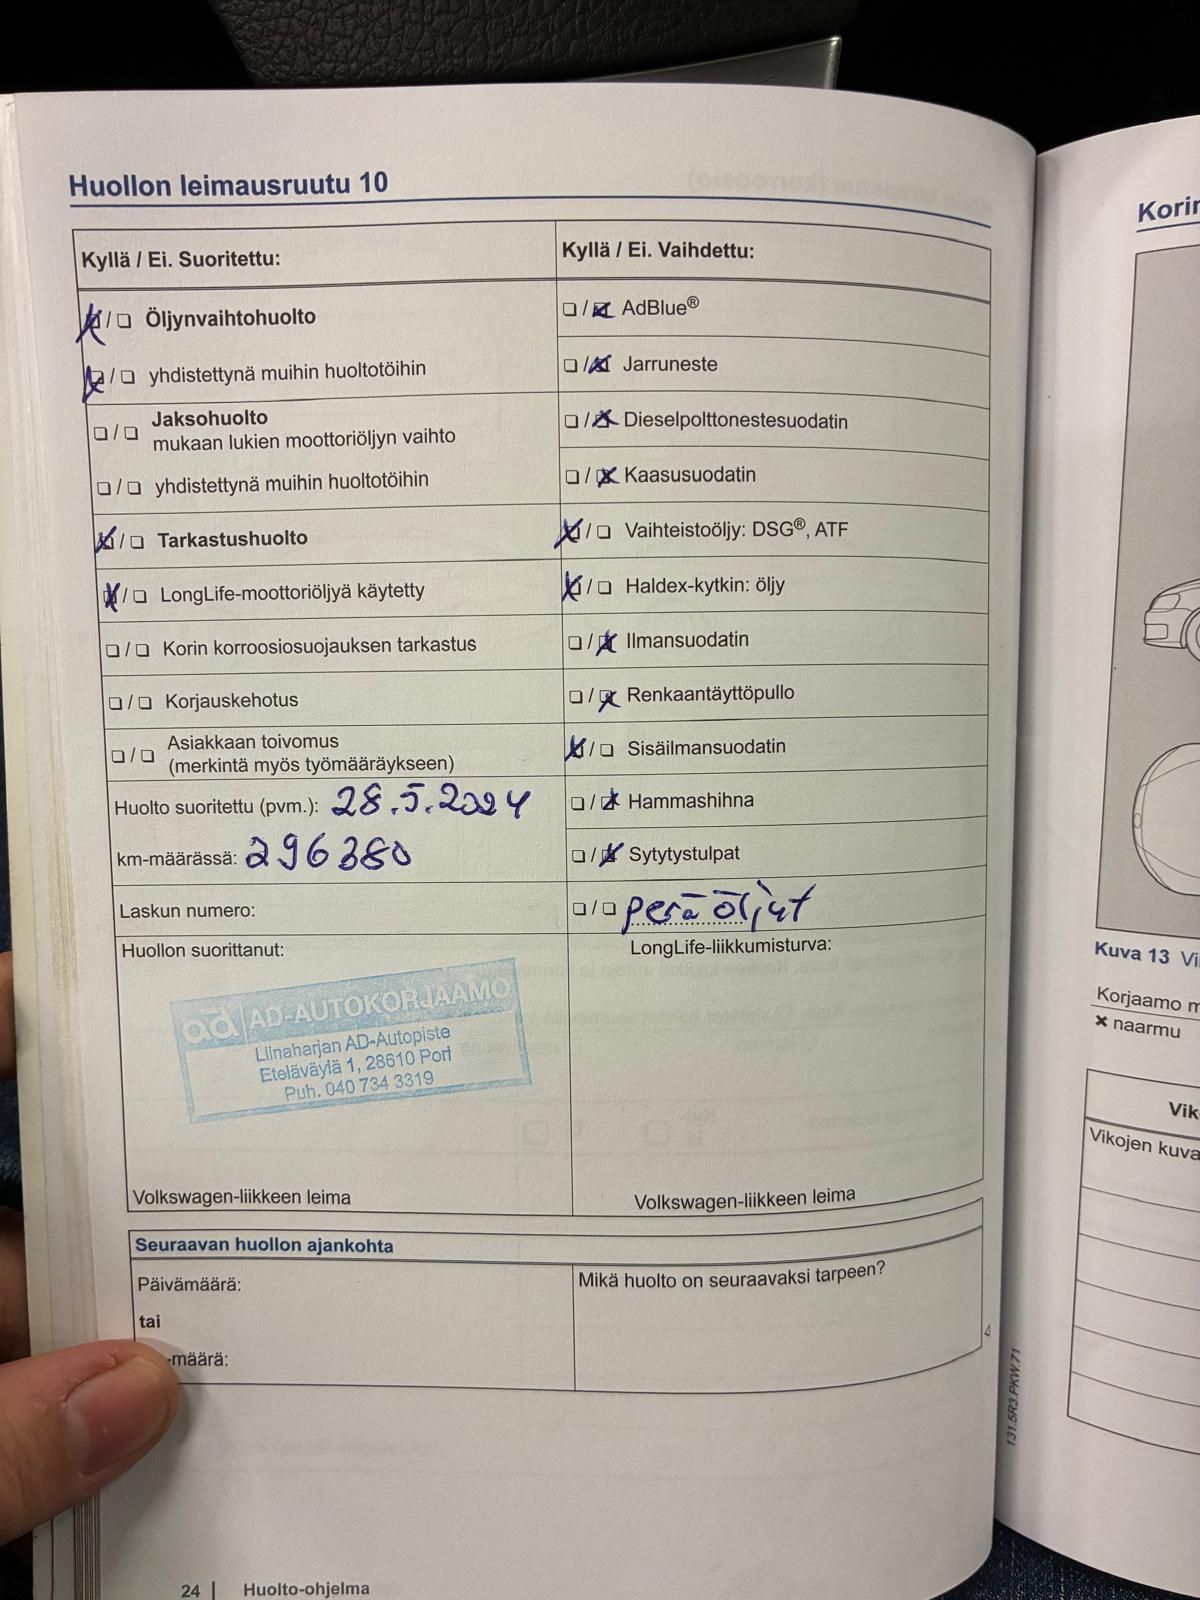 Huollon leimausruutu 10
Kyllä / Ei. Suoritettu:
☒/☐ Öljynvaihtohuolto
☒/☐ yhdistettynä muihin huoltotöihin
☐/☐ Jaksohuolto
mukaan lukien moottoriöljyn vaihto
☐/☐ yhdistettynä muihin huoltotöihin
☒/☐ Tarkastushuolto
☒/☐ LongLife-moottoriöljyä käytetty
☐/☐ Korin korroosiosuojauksen tarkastus
☐/☐ Korjauskehotus
☐/☐ Asiakkaan toivomus
(merkintä myös työmääräykseen)
Huolto suoritettu (pvm.): 28.5.2024
km-määrässä: 296380
Laskun numero:
Huollon suorittanut:
ad AD-AUTOKORJAAMO
Liinaharjan AD-Autopiste
Eteläväylä 1, 28610 Pori
Puh. 040 734 3319
Volkswagen-liikkeen leima
Kyllä / Ei. Vaihdettu:
☐/☒ AdBlue®
☐/☒ Jarruneste
☐/☒ Dieselpolttonestesuodatin
☐/☒ Kaasusuodatin
☒/☐ Vaihteistoöljy: DSG®, ATF
☒/☐ Haldex-kytkin: öljy
☐/☒ Ilmansuodatin
☐/☒ Renkaantäyttöpullo
☒/☐ Sisäilmansuodatin
☐/☒ Hammashihna
☐/☒ Sytytystulpat
☐/☐ perä öljyt
LongLife-liikkumisturva:
Volkswagen-liikkeen leima
Seuraavan huollon ajankohta
Päivämäärä:
tai
-määrä:
Mikä huolto on seuraavaksi tarpeen?
131.5R3.PKW.71
24 | Huolto-ohjelma
Kuva 13
Korjaamo
× naarmu
Vikojen